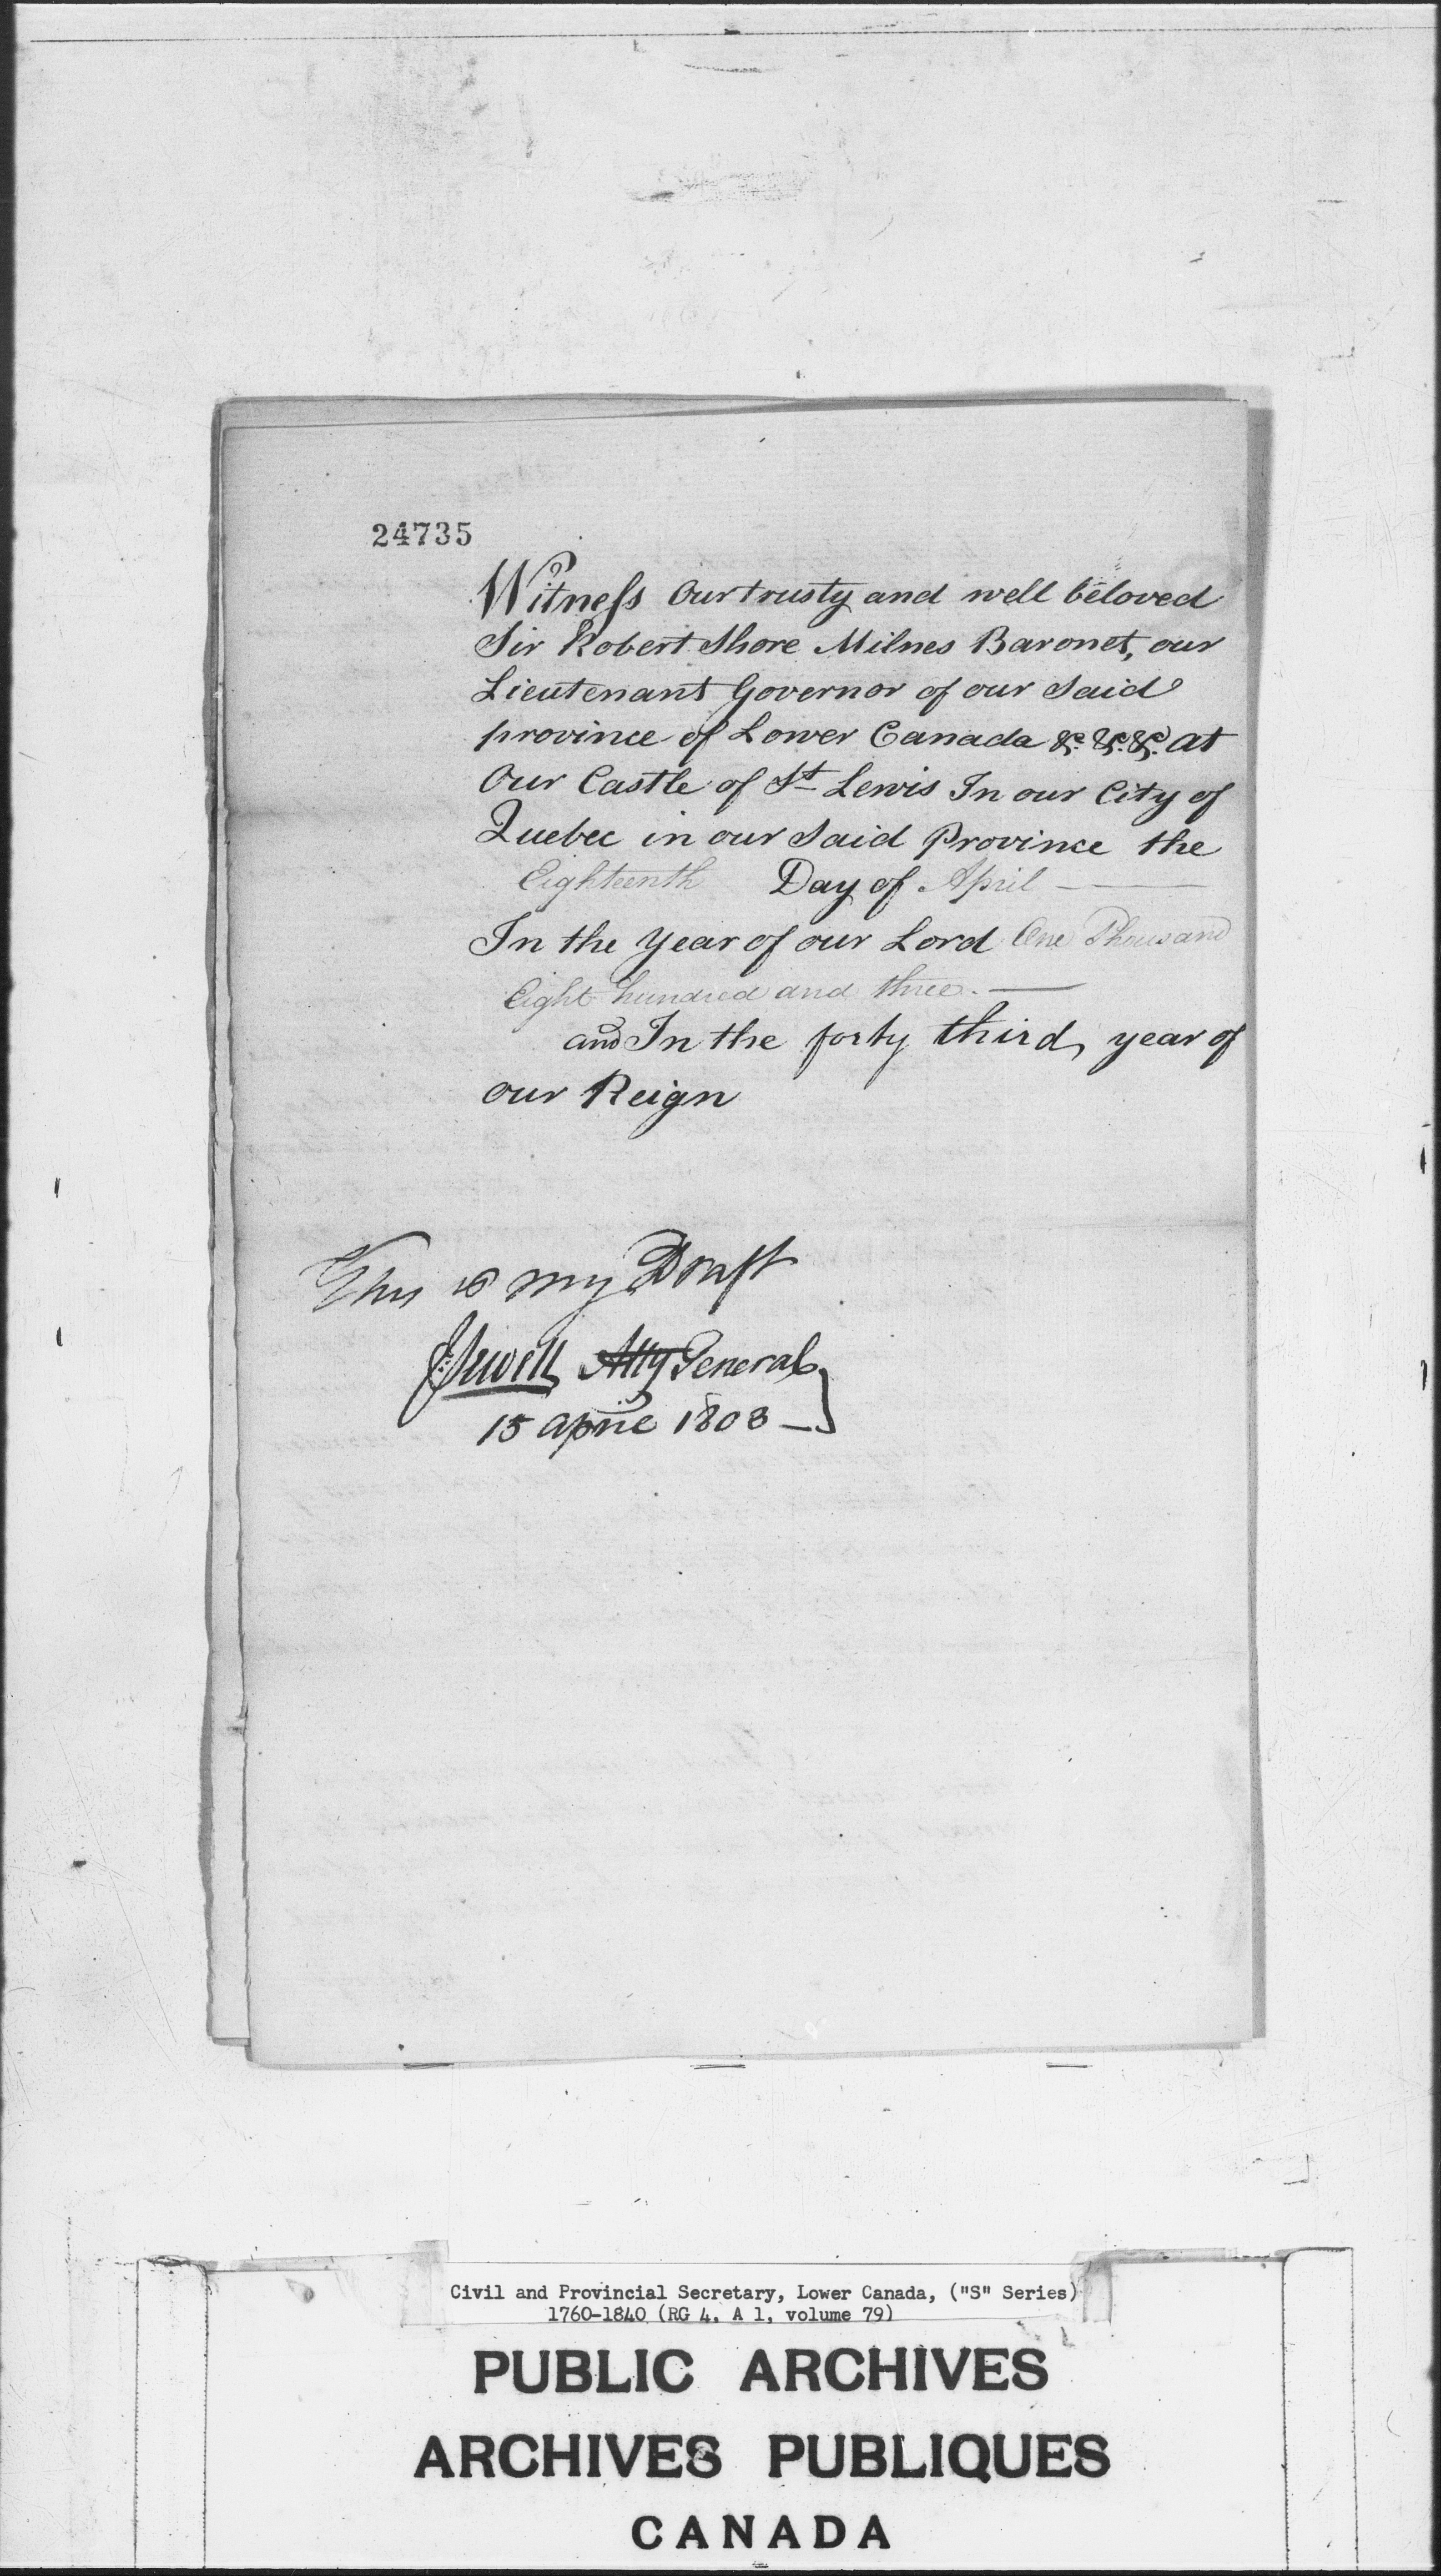 24735
Witness Our trusty and well beloved
Sir Robert Shore Milnes Baronet, our
Lieutenant Governor of our Said
province of Lower Canada &c. &c. &c. at
Our Castle of St Lewis In our City of
Quebec in our Said Province the
Eighteenth Day of April
In the Year of our Lord One Thousand
Eight hundred and three.
and In the forty third year of
our Reign
This is my Draft
J: Sewell Atty General
15 April 1803
Civil and Provincial Secretary, Lower Canada, ("S" Series)
1760-1840 (RG 4, A 1, volume 79)
PUBLIC ARCHIVES
ARCHIVES PUBLIQUES
CANADA